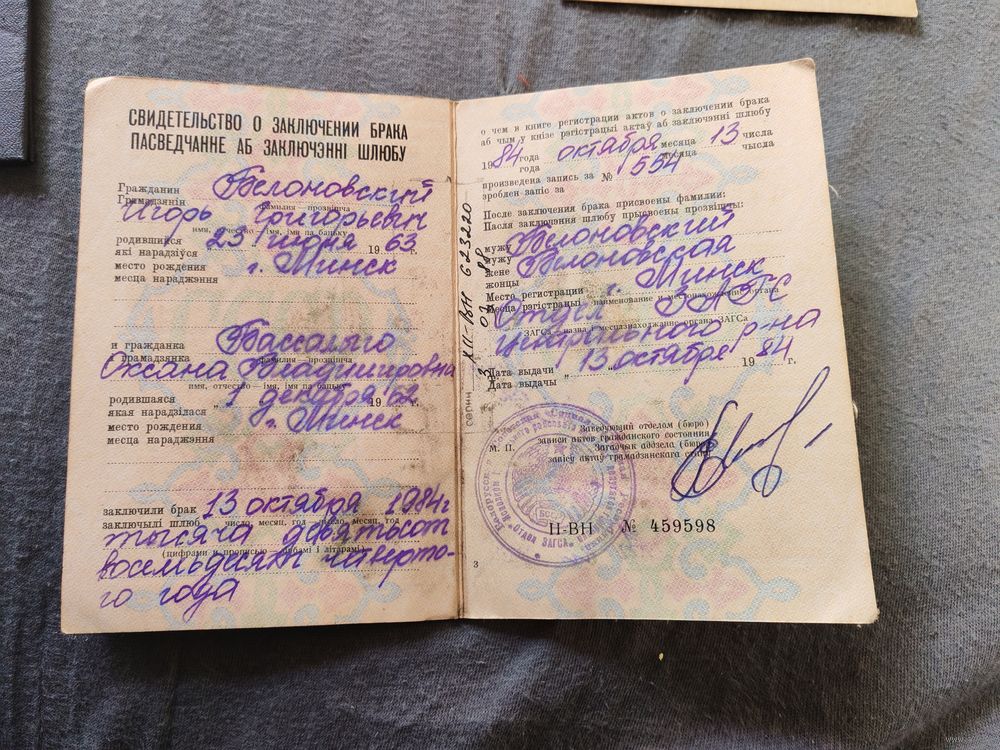 СВИДЕТЕЛЬСТВО О ЗАКЛЮЧЕНИИ БРАКА
ПАСВЕДЧАННЕ АБ ЗАКЛЮЧЭННІ ШЛЮБУ
Гражданин Белоновский
Грамадзянін фамилия — прозвішча
Игорь Григорьевич
имя, отчество — імя, імя па бацьку
родившийся 23 июня 1963 г.
які нарадзіўся
место рождения г. Минск
месца нараджэння
и гражданка
і грамадзянка фамилия — прозвішча
Оксана Владимировна
имя, отчество — імя, імя па бацьку
родившаяся „ 1 декабря 1962 г.
якая нарадзілася
место рождения г. Минск
месца нараджэння
заключили брак 13 октября 1984 г
заключылі шлюб число, месяц, год — чысло, месяц, год
тысяча девятьсот
(цифрами и прописью — лічбамі і літарамі)
восемьдесят четверто-
го года
о чем в книге регистрации актов о заключении брака
аб чым у кнізе рэгістрацыі актаў аб заключэнні шлюбу
1984 года октября месяца 13 числа
года месяца чысла
произведена запись за № 1554
зроблен запіс за
После заключения брака присвоены фамилии:
Пасля заключэння шлюбу прысвоены прозвішчы:
мужу Белоновский
мужу
жене Белоновская
жонцы
Место регистрации г. Минск
Месца рэгістрацыі наименование и местонахождение органа
Отдел ЗАГС
ЗАГСа — назва і месцазнаходжанне органа ЗАГСа
Центрального р-на
Дата выдачи „ 13 октября 1984 г.
Дата выдачы
XII-ВН 623220
Заведующий отделом (бюро)
записи актов гражданского состояния
М. П. Загадчык аддзела (бюро)
запісу актаў грамадзянскага стану
II-ВН № 459598
3